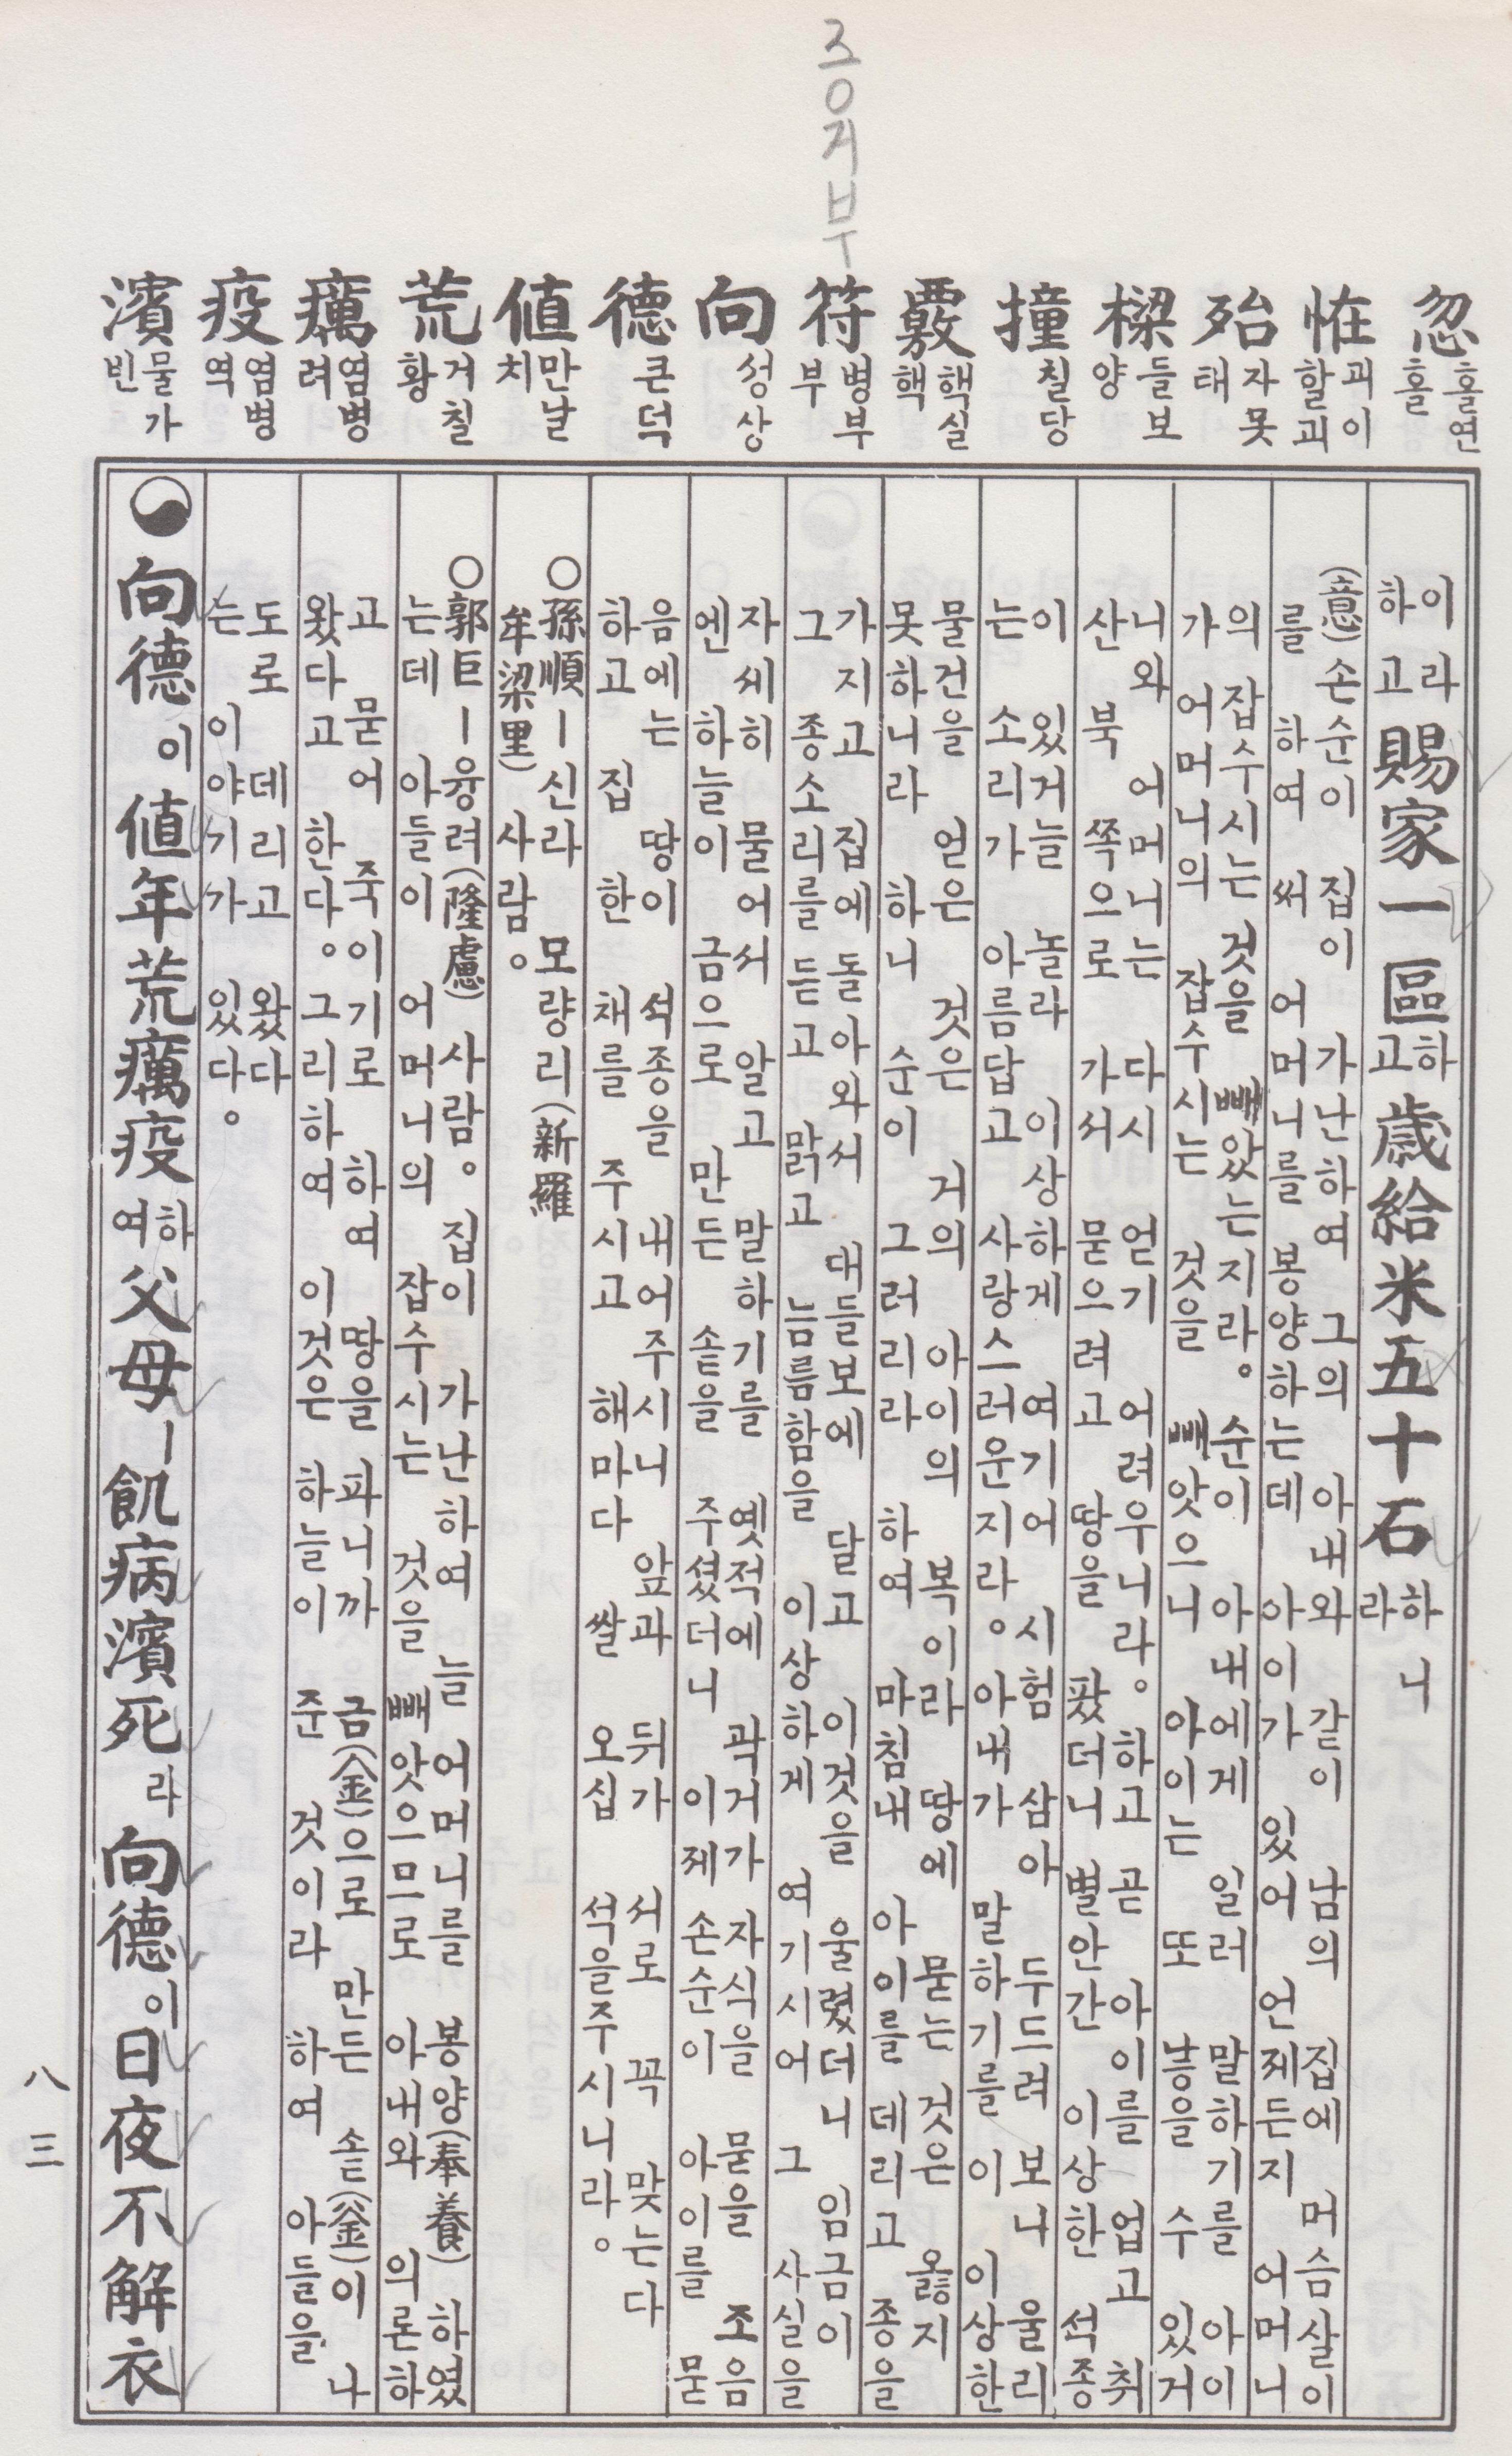 증거부
忽 홀연 홀
恠 괴이 할괴
殆 자못 태
樑 들보 양
撞 칠당
覈 핵실 핵
符 병부 부
向 성상
德 큰덕
値 만날 치
荒 거칠 황
癘 염병 려
疫 염병 역
濱 물가 빈
이라하고 賜家一區하고 歲給米五十石하니라
(意)손순이 집이 가난하여 그의 아내와 같이 남의 집에 머슴살이
를 하여 써 어머니를 봉양하는데 아이가 있어 언제든지 어머니
의 잡수시는 것을 빼았는지라。 순이 아내에게 일러 말하기를 아이
가 어머니의 잡수시는 것을 빼앗으니 아이는 또 낳을 수 있거
니와 어머니는 다시 얻기 어려우니라。하고 곧 아이를 업고 취
산 북쪽으로 가서 묻으려고 땅을 팠더니 별안간 이상한 석종
이 있거늘 놀라 이상하게 여기어 시험 삼아 두드려 보니 울리
는 소리가 아름답고 사랑스러운지라。아내가 말하기를 이 이상한
물건을 얻은 것은 거의 아이의 복이라 땅에 묻는 것은 옳지
못하니라 하니 순이 그러리라 하여 마침내 아이를 데리고 종을
가지고 집에 돌아와서 대들보에 달고 이것을 울렸더니 임금이
그 종소리를 듣고 맑고 늠름함을 이상하게 여기시어 그 사실을
자세히 물어서 알고 말하기를 옛적에 곽거가 자식을 묻을 조음
엔 하늘이 금으로 만든 솥을 주셨더니 이제 손순이 아이를 묻
음에는 땅이 석종을 내어주시니 앞과 뒤가 서로 꼭 맞는다
하고 집 한 채를 주시고 해마다 쌀 오십 석을주시니라。
○孫順ー신라 모량리(新羅
牟梁里) 사람。
○郭巨ー융려(隆慮) 사람。집이 가난하여 늘 어머니를 봉양(奉養)하였
는데 아들이 어머니의 잡수시는 것을 빼앗으므로 아내와 의론하
고 묻어 죽이기로 하여 땅을 파니까 금(金)으로 만든 솥(釜)이 나
왔다고 한다。그리하여 이것은 하늘이 준 것이라 하여 아들을
도로 데리고 왔다
는 이야기가 있다。
向德이 値年荒癘疫하여 父母ㅣ飢病濱死라 向德이 日夜不解衣
八三